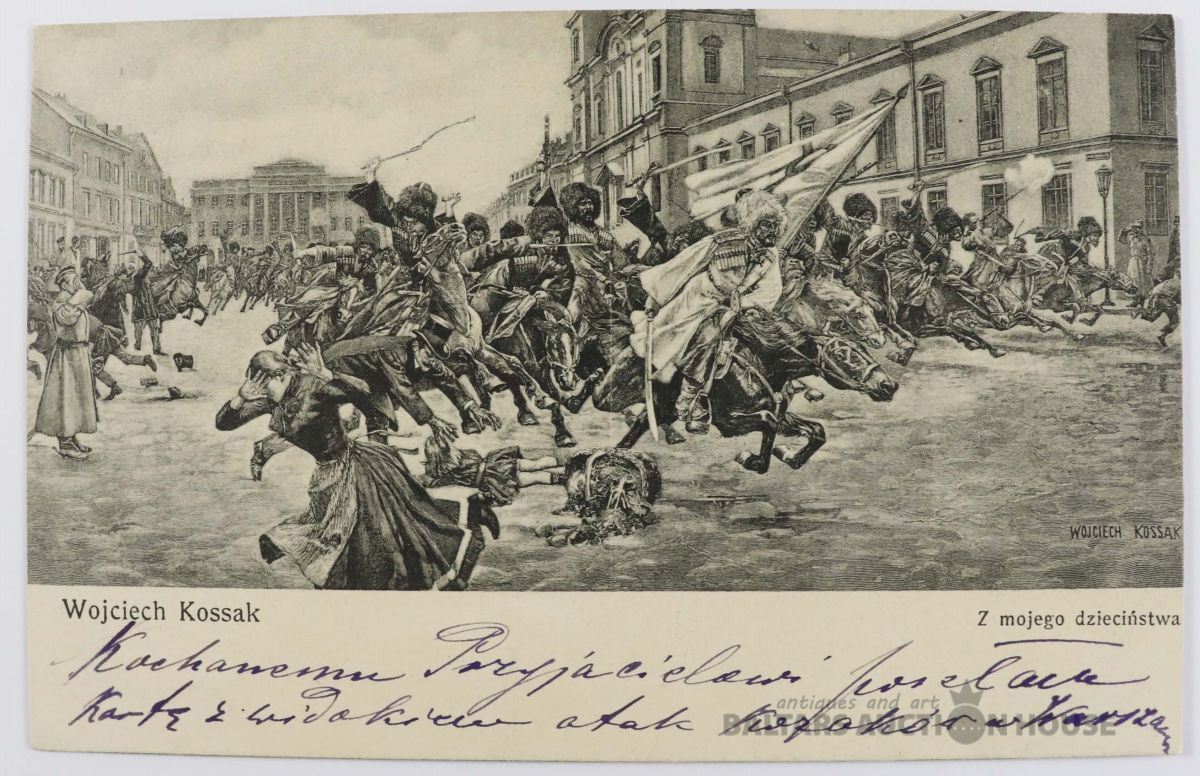 WOJCIECH KOSSAK
Wojciech Kossak
Z mojego dzieciństwa
Kochanemu Przyjacielowi posełam
Kartę z widokiem atak kozaków w Warszaw
antiques and art
BALTARS AUCTION HOUSE